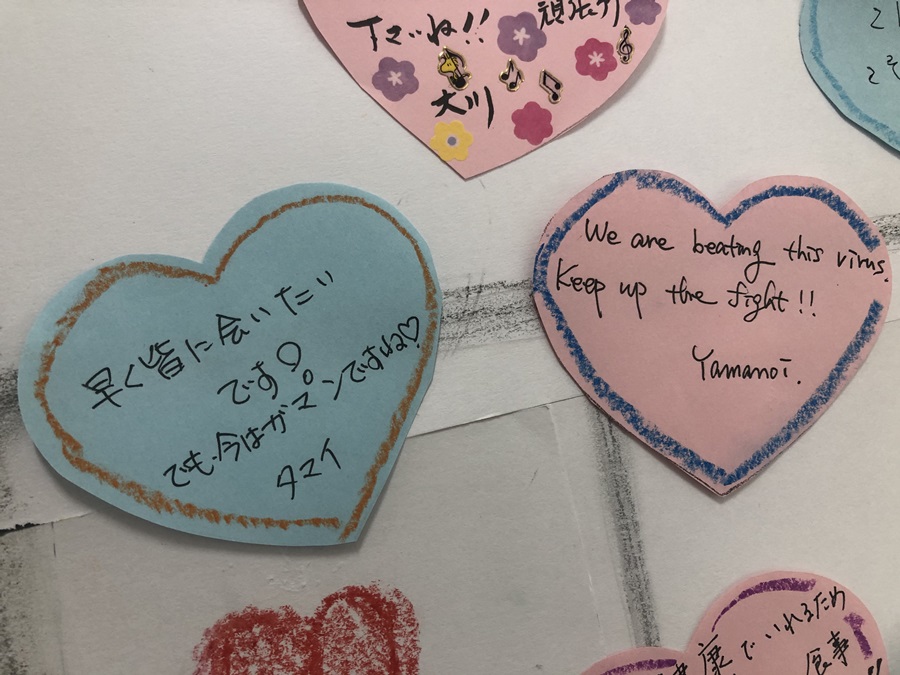 下さいね!!
頑張り
大川
早く皆に会いたい
です♡
でも、今はガマンですね♡
タマイ
We are beating this virus.
Keep up the fight!!
Yamanoi.
康でいれるため
食事